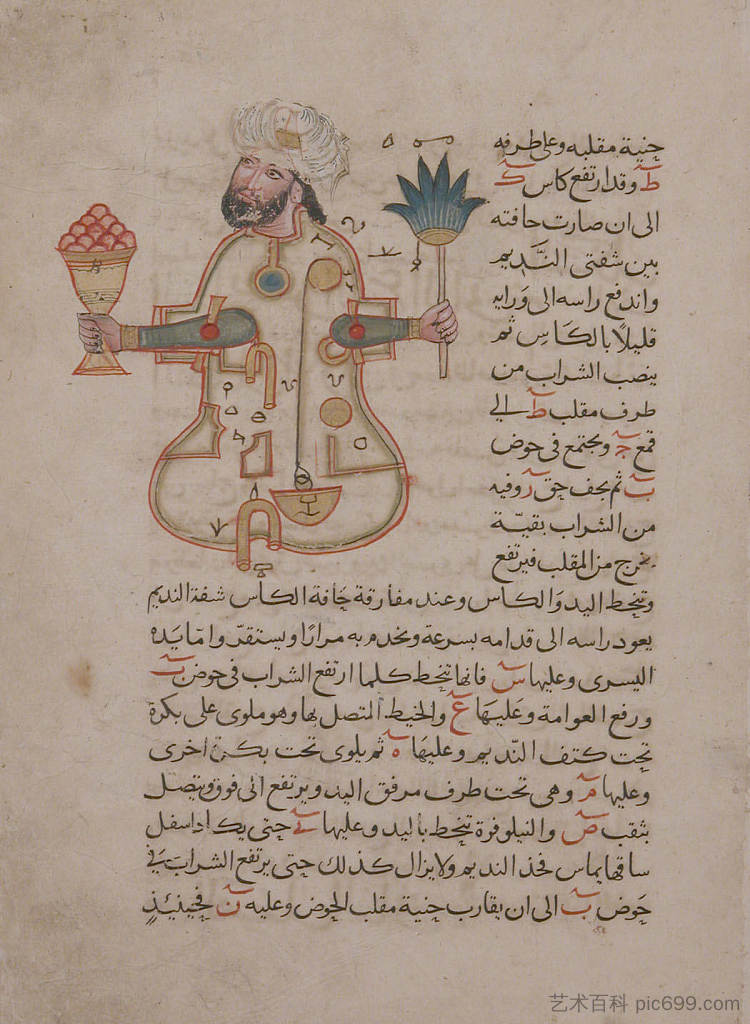 حنية مقلبه وعلى طرفه
ط وقد ارتفع كاس ك
الى ان صارت حافته
بين شفتى النديم
واندفع راسه الى ورايه
قليلًا بالكاس ثم
ينصب الشراب من
طرف مقلب ط الى
قمع ج ويجتمع فى حوض
ب ثم يجف حق ر وفيه
من الشراب بقيّة
يخرج من المقلب فيرتفع
وتنحط اليد والكاس وعند مفارقة حافة الكاس شفة النديم
يعود راسه الى قدامه بسرعة ويخدم به مرارًا ويستقر واما يده
اليسرى وعليها س فانها تنحط كلما ارتفع الشراب فى حوض ب
ورفع العوامة وعليها ع والخيط المتصل بها وهو ملوى على بكرة
تحت كتف النديم وعليها ه ثم يلوى تحت بكرة اخرى
وعليها م وهى تحت طرف مرفق اليد ويرتفع الى فوق ويتصل
بثقب ص والنيلوفرة تنحط باليد وعليها حتى يكاد اسفل
ساقها يماس فخذ النديم ولا يزال كذلك حتى يرتفع الشراب فى
حوض ب الى ان يقارب حنية مقلب الحوض وعليه ن فحينيذٍ
艺术百科 pic699.com